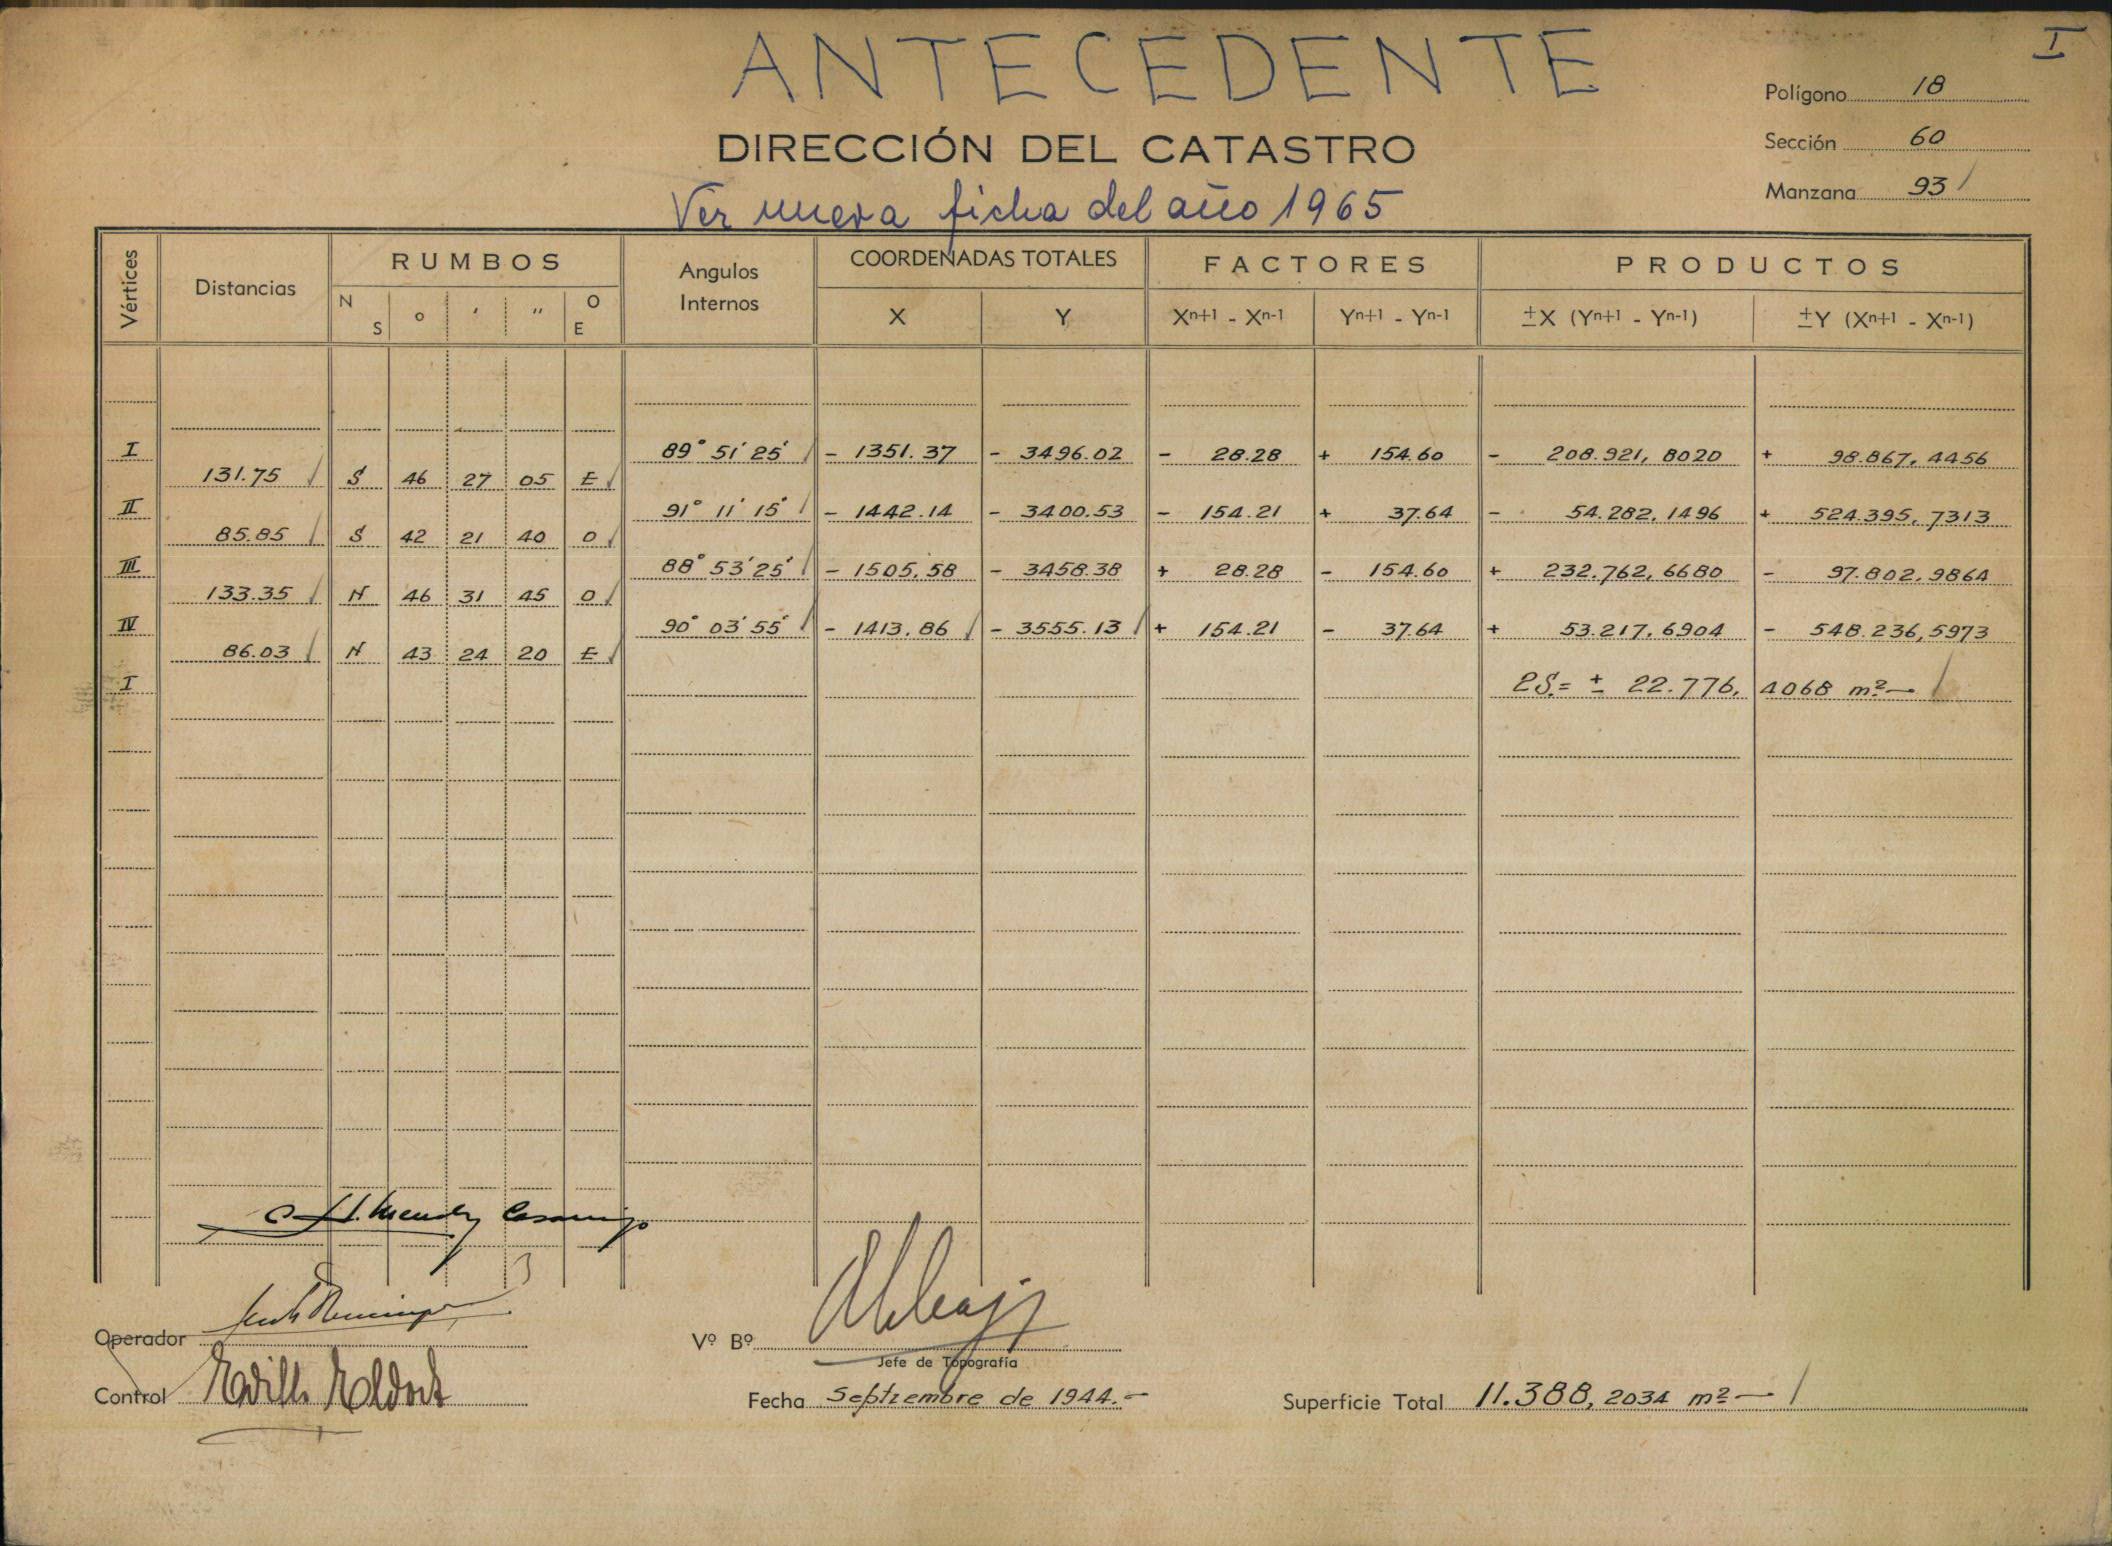 ANTECEDENTE
I
Polígono 18
DIRECCIÓN DEL CATASTRO
Sección 60
Manzana 93
Ver nueva ficha del año 1965
Vértices Distancias RUMBOS Angulos Internos COORDENADAS TOTALES FACTORES PRODUCTOS
N S ° ' " O E X Y Xn+1 - Xn-1 Yn+1 - Yn-1 ±X (Yn+1 - Yn-1) ±Y (Xn+1 - Xn-1)
I 89° 51' 25" - 1351.37 - 3496.02 - 28.28 + 154.60 - 208.921,8020 + 98.867,4456
131.75 S 46 27 05 E
II 91° 11' 15" - 1442.14 - 3400.53 - 154.21 + 37.64 - 54.282,1496 + 524.395,7313
85.85 S 42 21 40 O
III 88° 53' 25" - 1505,58 - 3458.38 + 28.28 - 154.60 + 232.762,6680 - 97.802,9864
133.35 N 46 31 45 O
IV 90° 03' 55" - 1413,86 - 3555.13 + 154.21 - 37.64 + 53.217,6904 - 548.236,5973
86.03 N 43 24 20 E
I 2S.= ± 22.776,4068 m²
Operador
Vº Bº
Jefe de Topografía
Control
Fecha Septiembre de 1944.-
Superficie Total 11.388,2034 m²